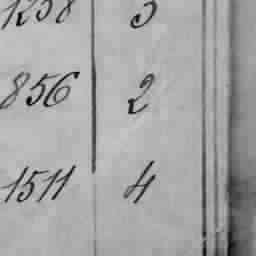 1258 3
856 2
1511 4